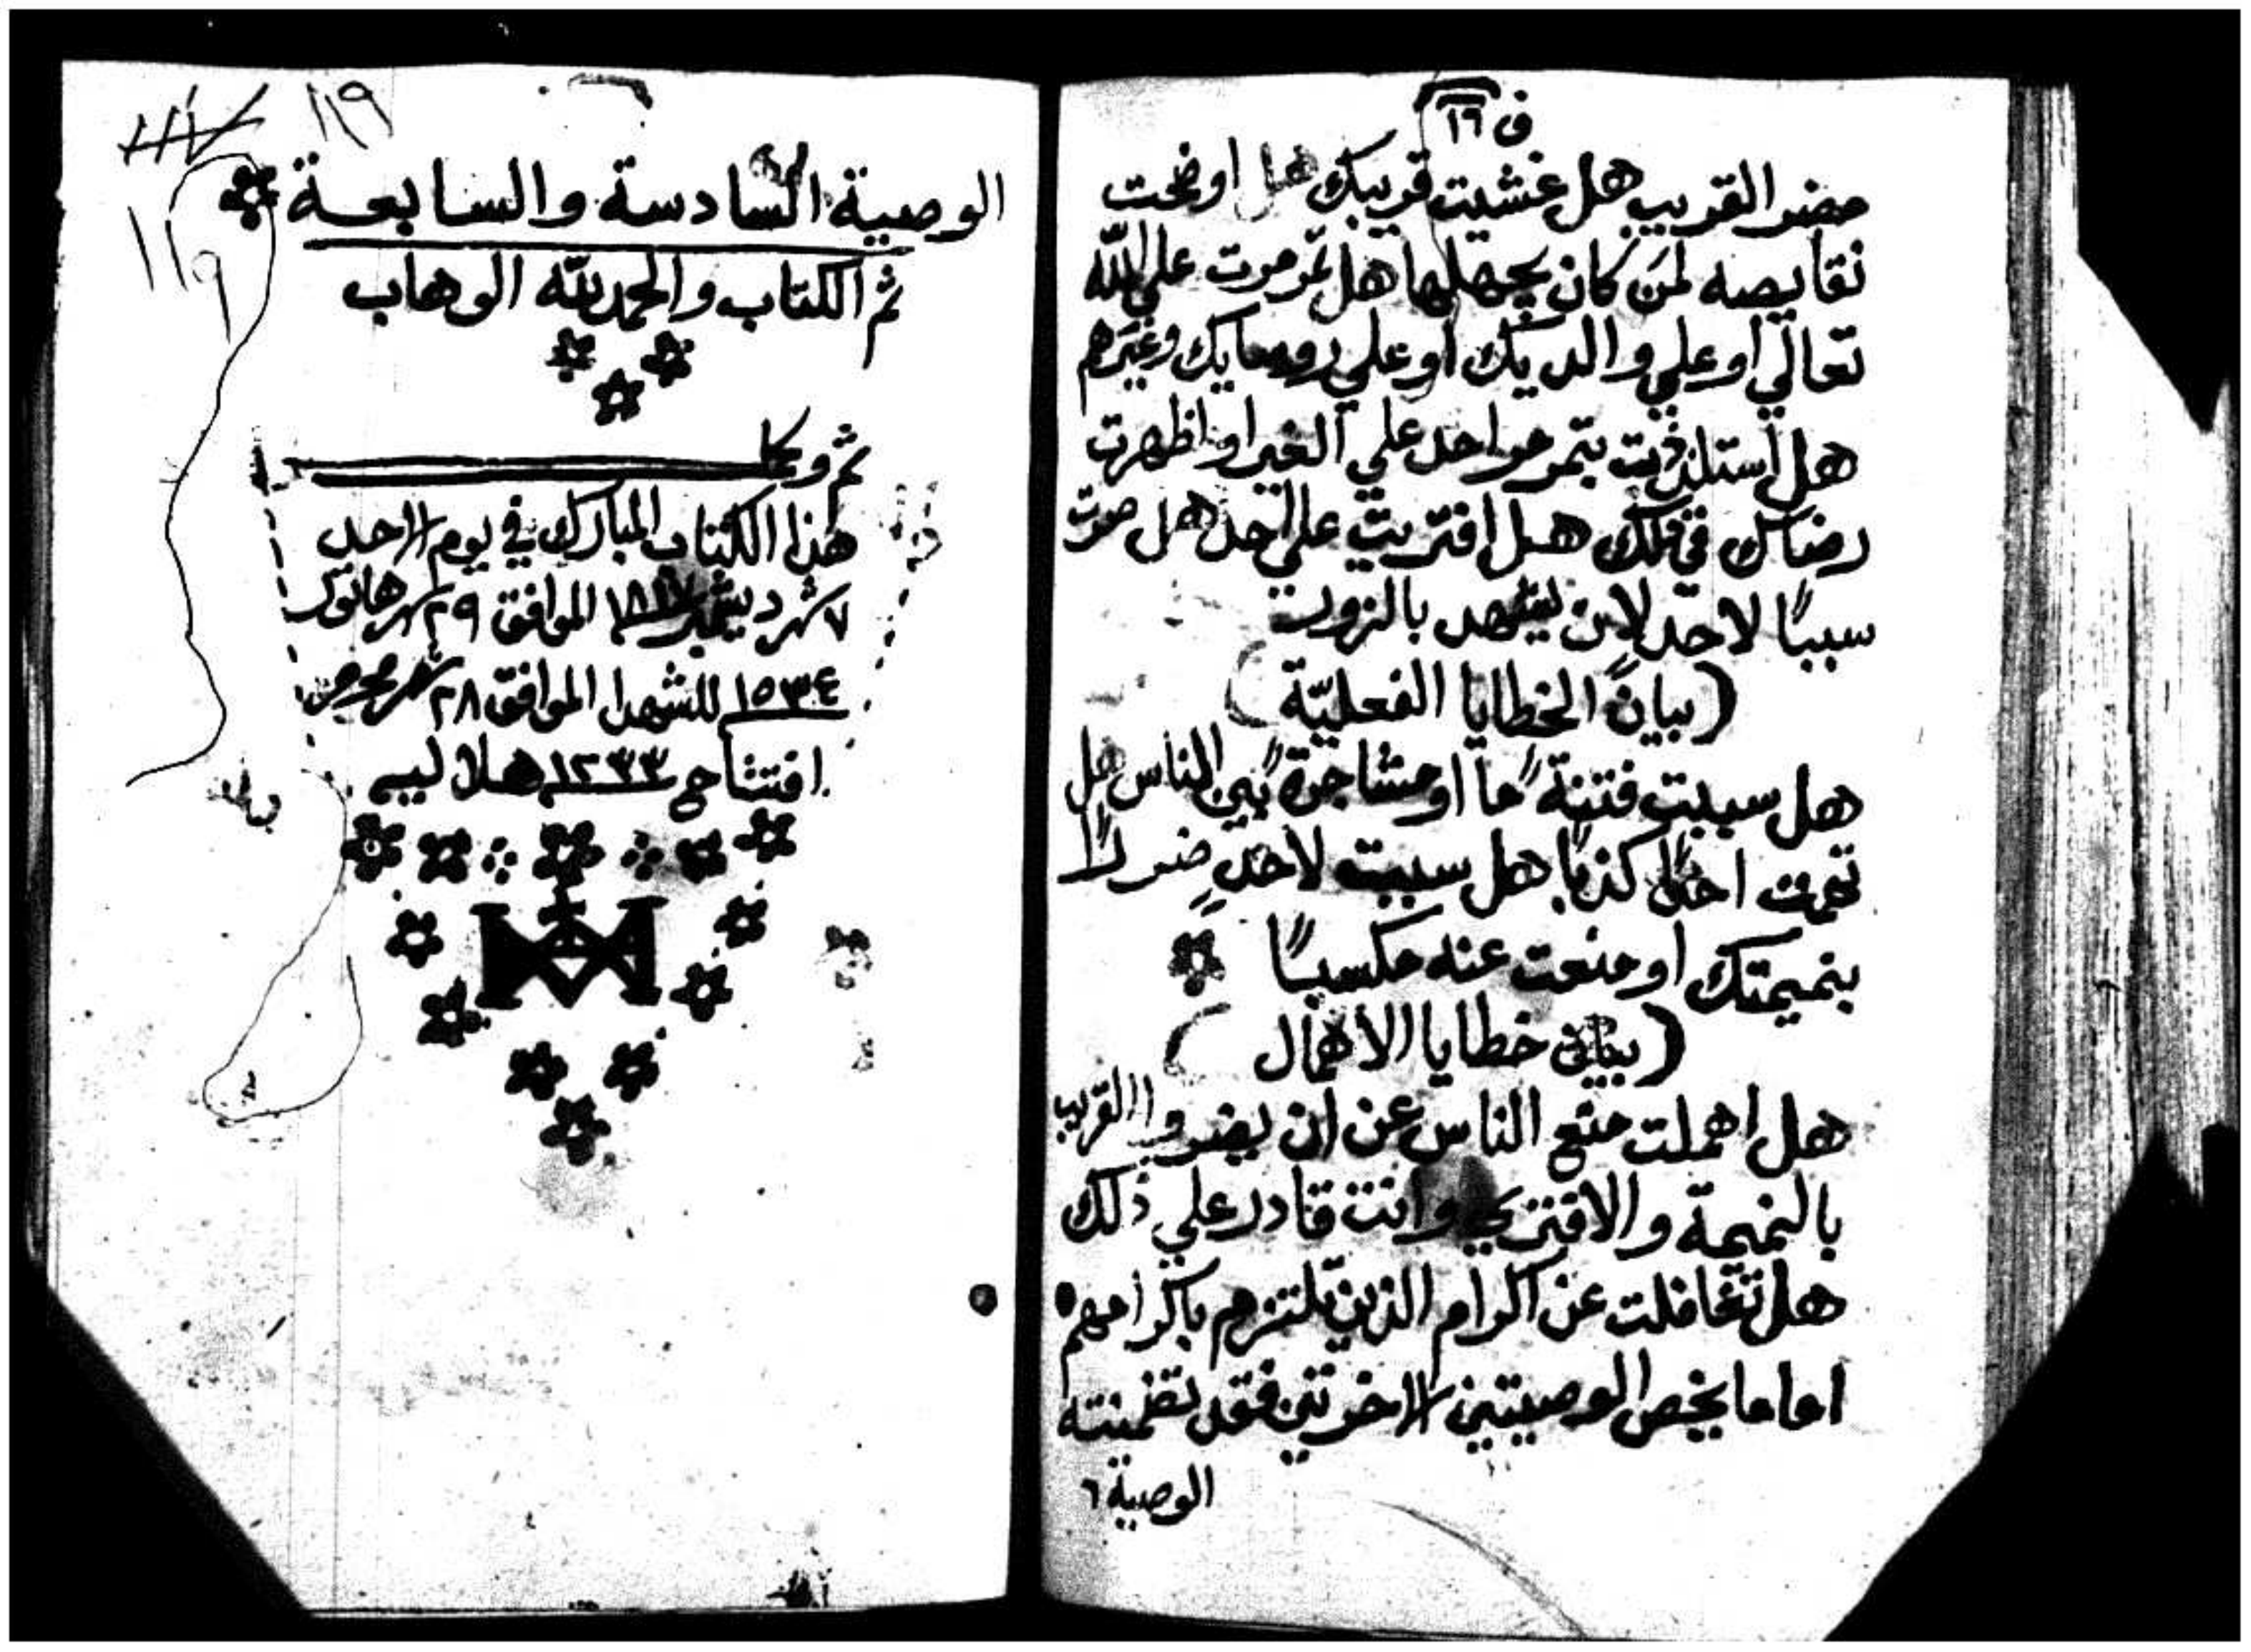 ف ١٩
مضر القريب هل غشيت قريبك هل اوضحت
نقايصه لمن كان يجهلها هل تمرمرت على الله
تعالي او علي والديك او علي روسايك وغيرهم
هل استلذيت بتمرمر احد علي الغير او اظهرت
رضاك في قلبك هل افتريت علي احد هل صرت
سببًا لاحدٍ لان يشهد بالزور
(بيان الخطايا الفعليّة)
هل سببت فتنةً ما او مشاجرةً بين الناس هل
تهمت احدًا كذبًا هل سببت لاحدٍ ضررًا
بنميمتك او منعت عنه مكسبًا
(بيان خطايا الاهمال)
هل اهملت منع الناس عن ان يضروا القريب
بالنميمة والافتري وانت قادر علي ذلك
هل تغافلت عن اكرام الذين تلتزم باكرامهم
اما ما يخص الوصيتين الاخرتين فقد تضمنته
الوصية ٦
١١٩
الوصية السادسة والسابعة
تم الكتاب والحمد لله الوهاب
١١٩
تم وكمل
هذا الكتاب المبارك في يوم الاحد
٧ شهر ديسمبر ١٨١٧ الموافق ٢٩ شهر هاتور
١٥٣٤ للشهدا الموافق ٢٨ شهر محرم
افتتاح ١٢٣٣ هلاليه